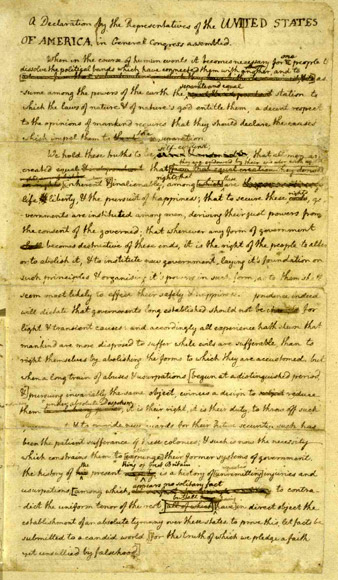 A Declaration by the Representatives of the UNITED STATES
OF AMERICA, in General Congress assembled.
When in the course of human events it becomes necessary for one people to
dissolve the political bands which have connected them with another, and to
as-
separate and equal
sume among the powers of the earth the station to
which the laws of nature & of nature's god entitle them, a decent respect
to the opinions of mankind requires that they should declare the causes
which impel them to the separation.
self-evident
We hold these truths to be that all men are
created equal that
rights; that
inherent & inalienable, among which are
life, & liberty, & the pursuit of happiness; that to secure these rights, go-
vernments are instituted among men, deriving their just powers from
the consent of the governed; that whenever any form of government
becomes destructive of these ends, it is the right of the people to alter
or to abolish it, & to institute new government, laying it's foundation on
such principles & organising it's powers in such form, as to them shall
seem most likely to effect their safety & happiness. prudence indeed
will dictate that governments long established should not be changed for
light & transient causes: and accordingly all experience hath shewn that
mankind are more disposed to suffer while evils are sufferable, than to
right themselves by abolishing the forms to which they are accustomed. but
when a long train of abuses & usurpations [begun at a distinguished period
&] pursuing invariably the same object, evinces a design to reduce
under absolute despotism
them it is their right, it is their duty, to throw off such
& to provide new guards for their future security. such has
been the patient sufferance of these colonies; & such is now the necessity
which constrains them to [expunge] their former systems of government.
the King of Great Britain
the history of the present is a history of [unremitting] injuries and
repeated
appears no solitary fact
usurpations, [among which, to contra-
dict the uniform tenor of the rest [all of which] have in direct object the
but all
establishment of an absolute tyranny over these states. to prove this let facts be
submitted to a candid world [for the truth of which we pledge a faith
yet unsullied by falsehood]